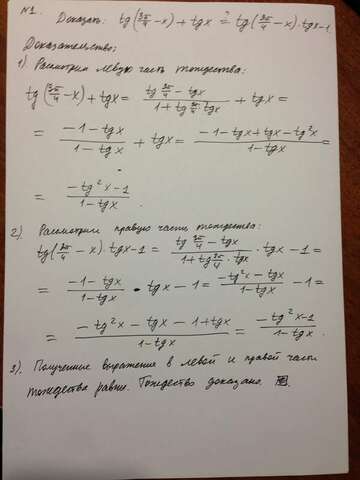 №1. Доказать: tg(3π/4 - x) + tgx ?= tg(3π/4 - x)·tgx-1
Доказательство:
1) Рассмотрим левую часть тождества:
tg(3π/4 - x) + tgx = (tg 3π/4 - tgx)/(1 + tg 3π/4 · tgx) + tgx =
= (-1 - tgx)/(1 - tgx) + tgx = (-1 - tgx + tgx - tg²x)/(1 - tgx) =
= (-tg²x - 1)/(1 - tgx).
2) Рассмотрим правую часть тождества:
tg(3π/4 - x)·tgx-1 = (tg 3π/4 - tgx)/(1 + tg 3π/4 · tgx) · tgx - 1 =
= (-1 - tgx)/(1 - tgx) · tgx - 1 = (-tg²x - tgx)/(1 - tgx) - 1 =
= (-tg²x - tgx - 1 + tgx)/(1 - tgx) = (-tg²x-1)/(1 - tgx).
3). Полученные выражение в левой и правой части
тождества равны. Тождество доказано.